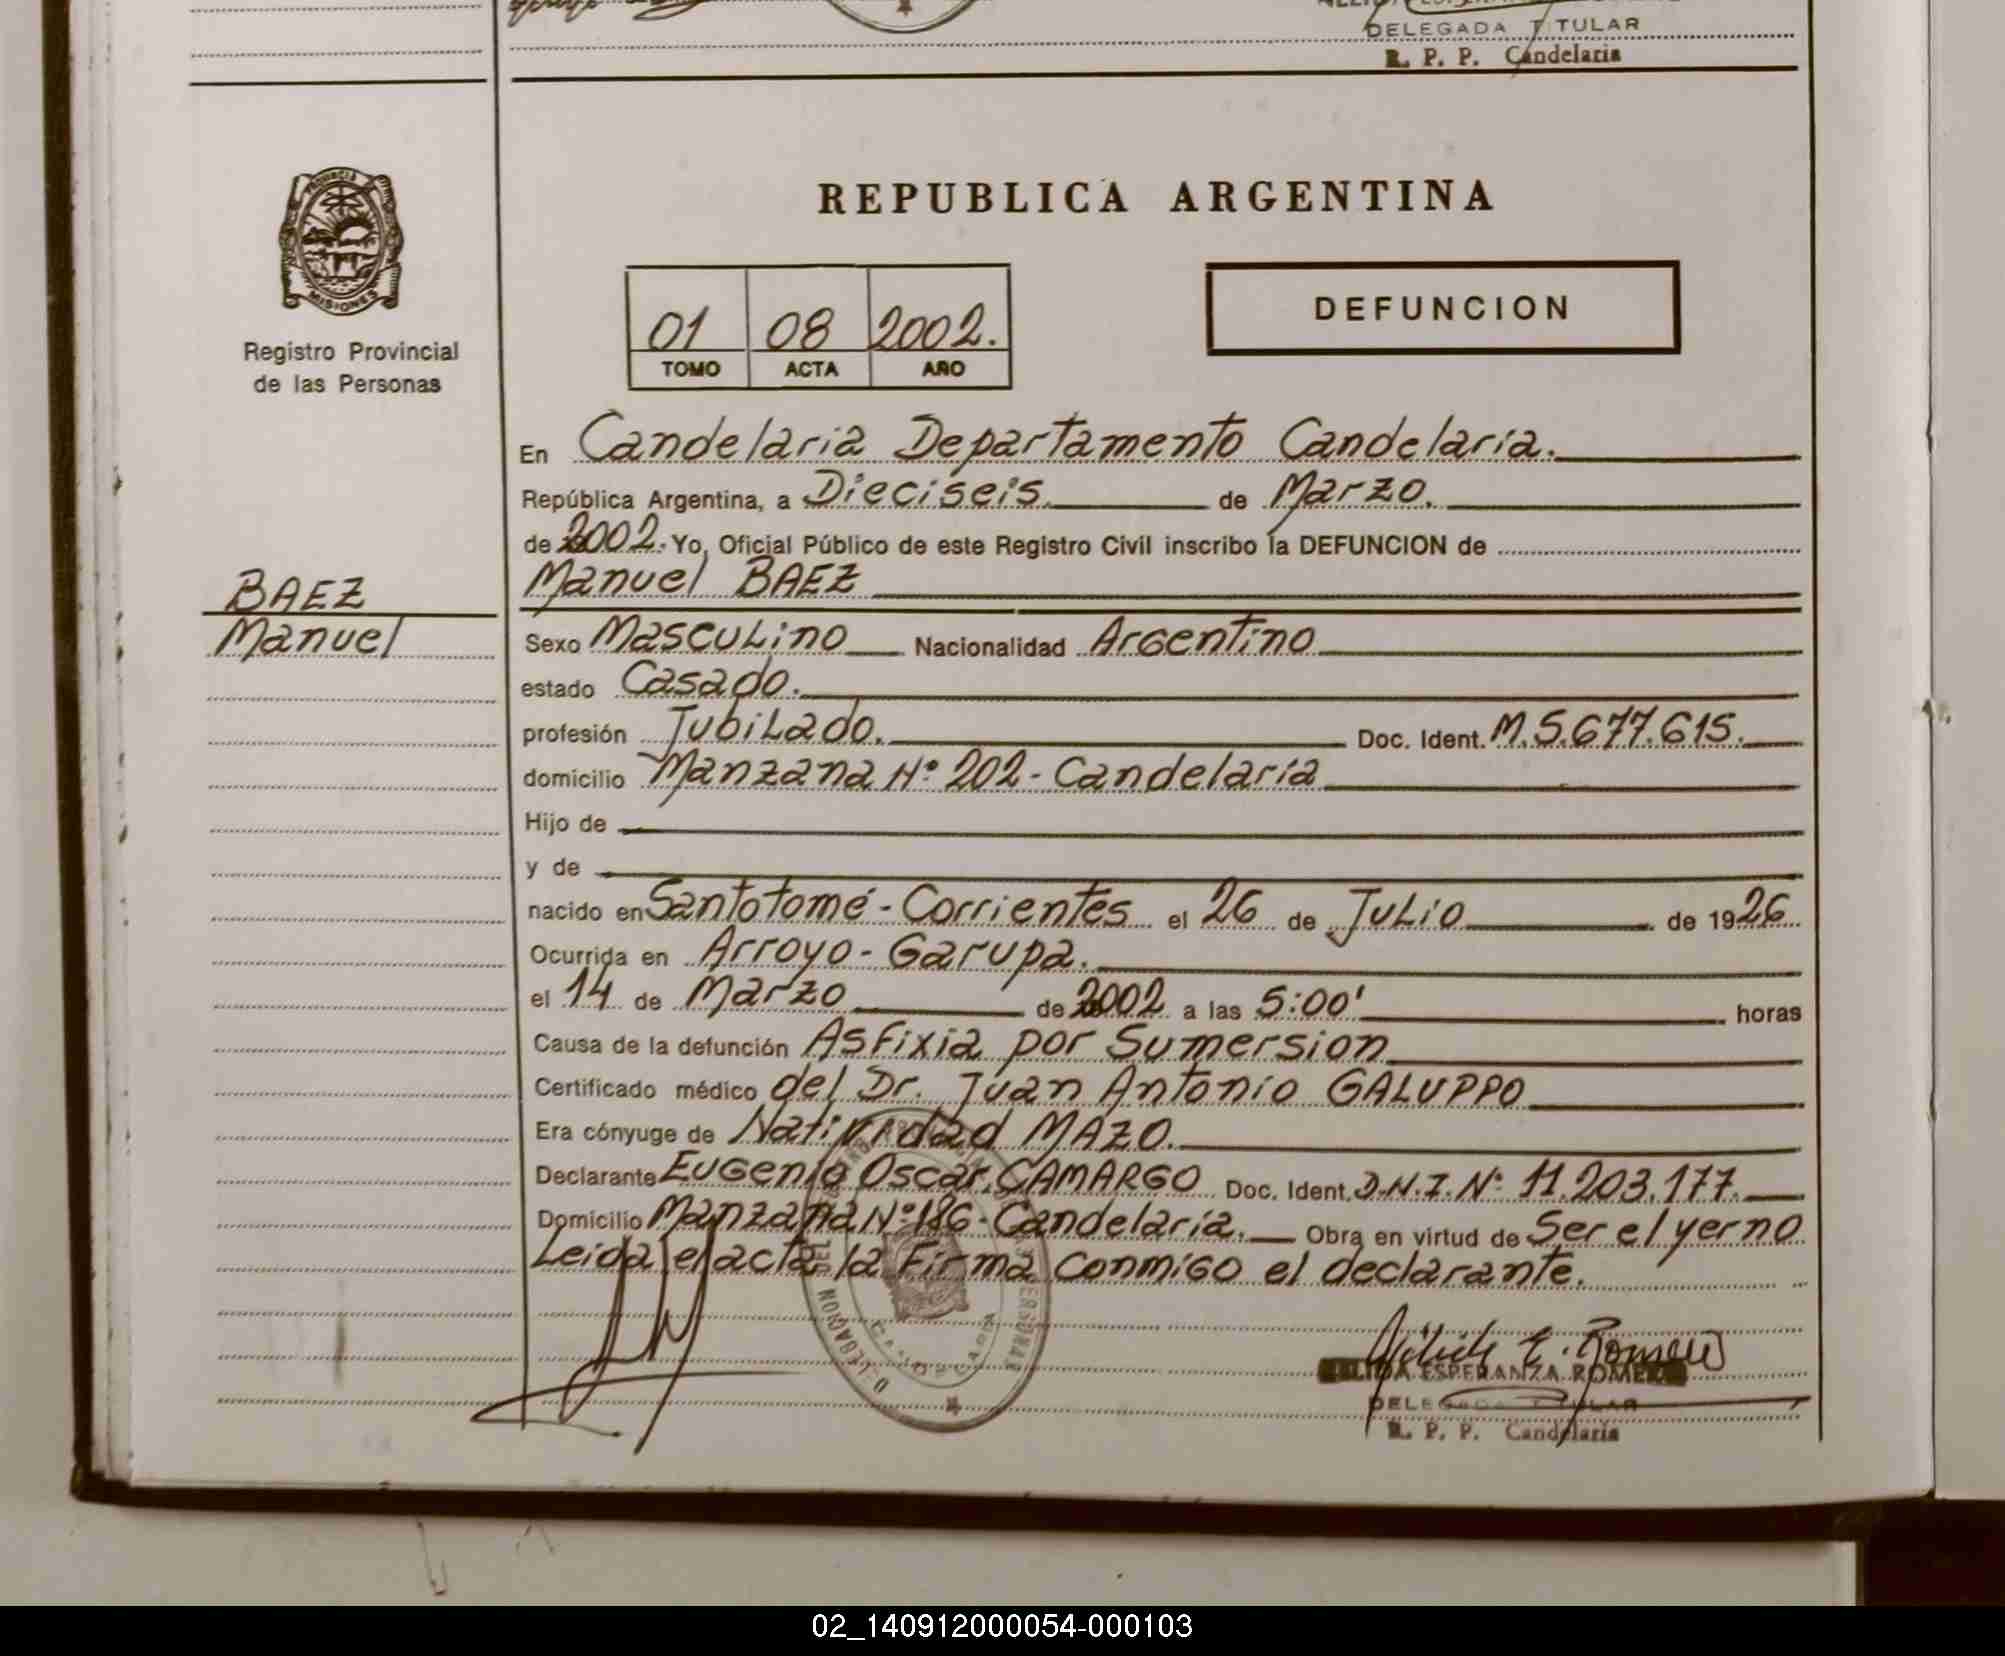 DELEGADA TITULAR
R. P. P. Candelaria
PROVINCIA
MISIONES
Registro Provincial
de las Personas
BAEZ
Manuel
REPUBLICA ARGENTINA
01 08 2002.
TOMO ACTA AÑO
DEFUNCION
En Candelaria Departamento Candelaria.
República Argentina, a Dieciseis. de Marzo.
de 2002. Yo, Oficial Público de este Registro Civil inscribo la DEFUNCION de
Manuel BAEZ
Sexo Masculino Nacionalidad Argentino
estado Casado.
profesión Jubilado. Doc. Ident. M.5.677.615.
domicilio Manzana Nº 202 - Candelaria
Hijo de
y de
nacido en Santotomé - Corrientes el 26 de Julio de 1926
Ocurrida en Arroyo - Garupa.
el 14 de Marzo de 2002 a las 5:00' horas
Causa de la defunción Asfixia por Sumersion
Certificado médico del Dr. Juan Antonio GALUPPO
Era cónyuge de Natividad MAZO.
Declarante Eugenio Oscar CAMARGO Doc. Ident. D.N.I. Nº 11.203.177.
Domicilio Manzana Nº 186 - Candelaria. Obra en virtud de Ser el yerno
Leida el acta la Firma conmigo el declarante.
DELEGACION
CANDELARIA
Nélida E. Romero
NELIDA ESPERANZA ROMERO
DELEGADA TITULAR
R. P. P. Candelaria
02_140912000054-000103